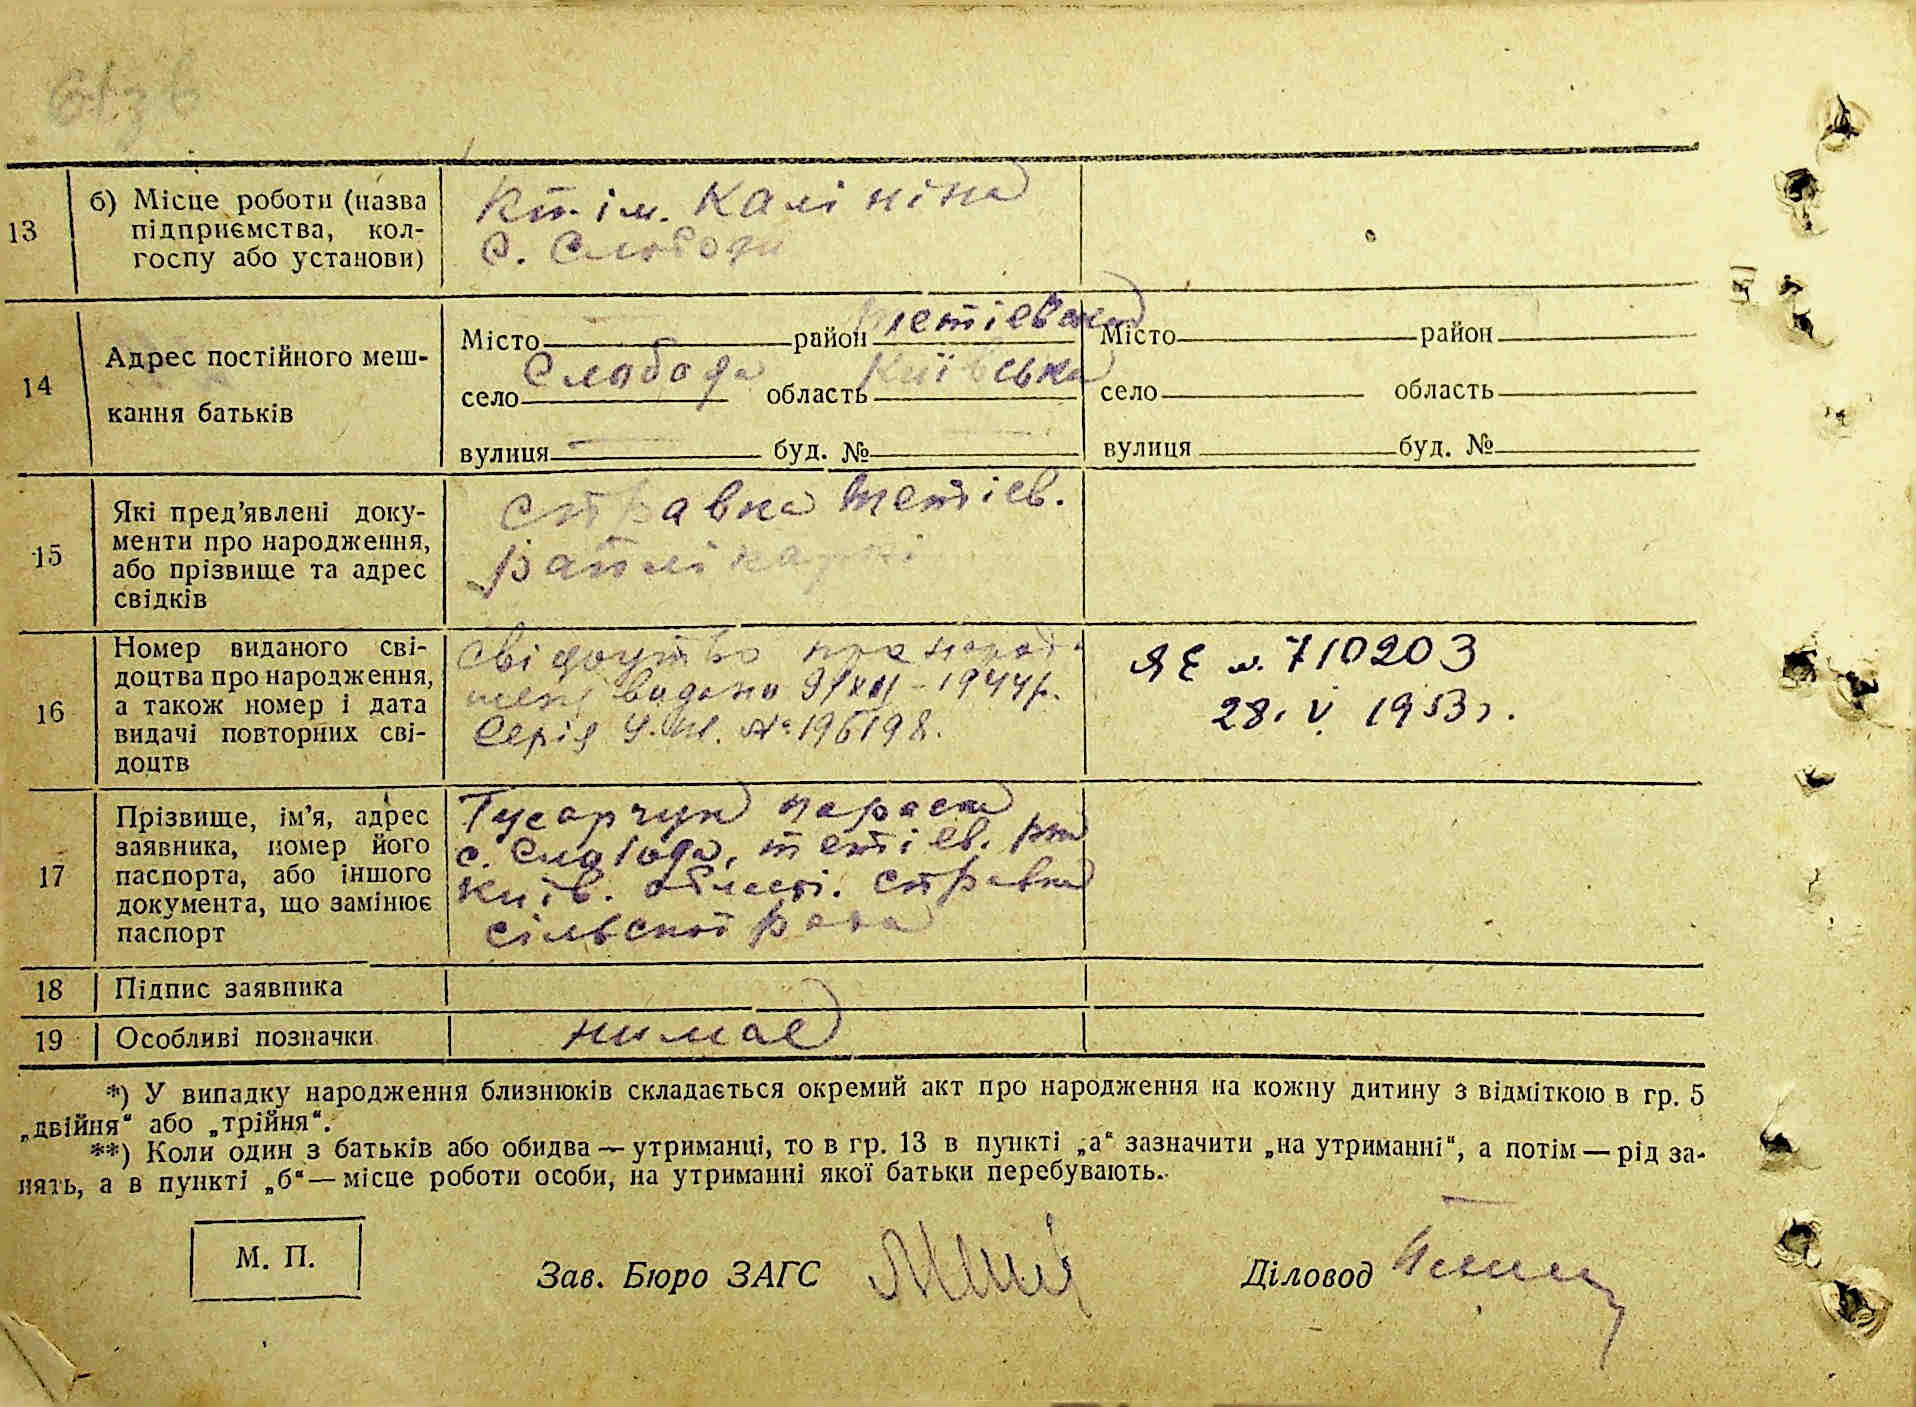 13
б) Місце роботи (назва
підприємства, кол-
госпу або установи)
Кп. ім. Калініна
с. Слободи
14
Адрес постійного меш-
кання батьків
Місто район Тетіевский
село Слабода область Київська
вулиця — буд. №
Місто район
село область
вулиця буд. №
15
Які пред’явлені доку-
менти про народження,
або прізвище та адрес
свідків
Справка Тетіев.
райлікарні
16
Номер виданого сві-
доцтва про народження,
а також номер і дата
видачі повторних сві-
доцтв
Свідоцтво про народ-
жені видано 9/XII-1944 р.
Серія № 196198.
ЯЕ №. 710203
28. V. 1953 г.
17
Прізвище, ім’я, адрес
заявника, номер його
паспорта, або іншого
документа, що замінює
паспорт
Гусарчук Параска
с. Слобода, Тетіев. р-на
Київ. області. Справка
сільської рада
18
Підпис заявника
19
Особливі позначки
нимае
*) У випадку народження близнюків складається окремий акт про народження на кожну дитину з відміткою в гр. 5
„двійня“ або „трійня“.
**) Коли один з батьків або обидва — утриманці, то в гр. 13 в пункті „а“ зазначити „на утриманні“, а потім — рід за-
нять, а в пункті „б“ — місце роботи особи, на утриманні якої батьки перебувають.
М. П.
Зав. Бюро ЗАГС
Діловод